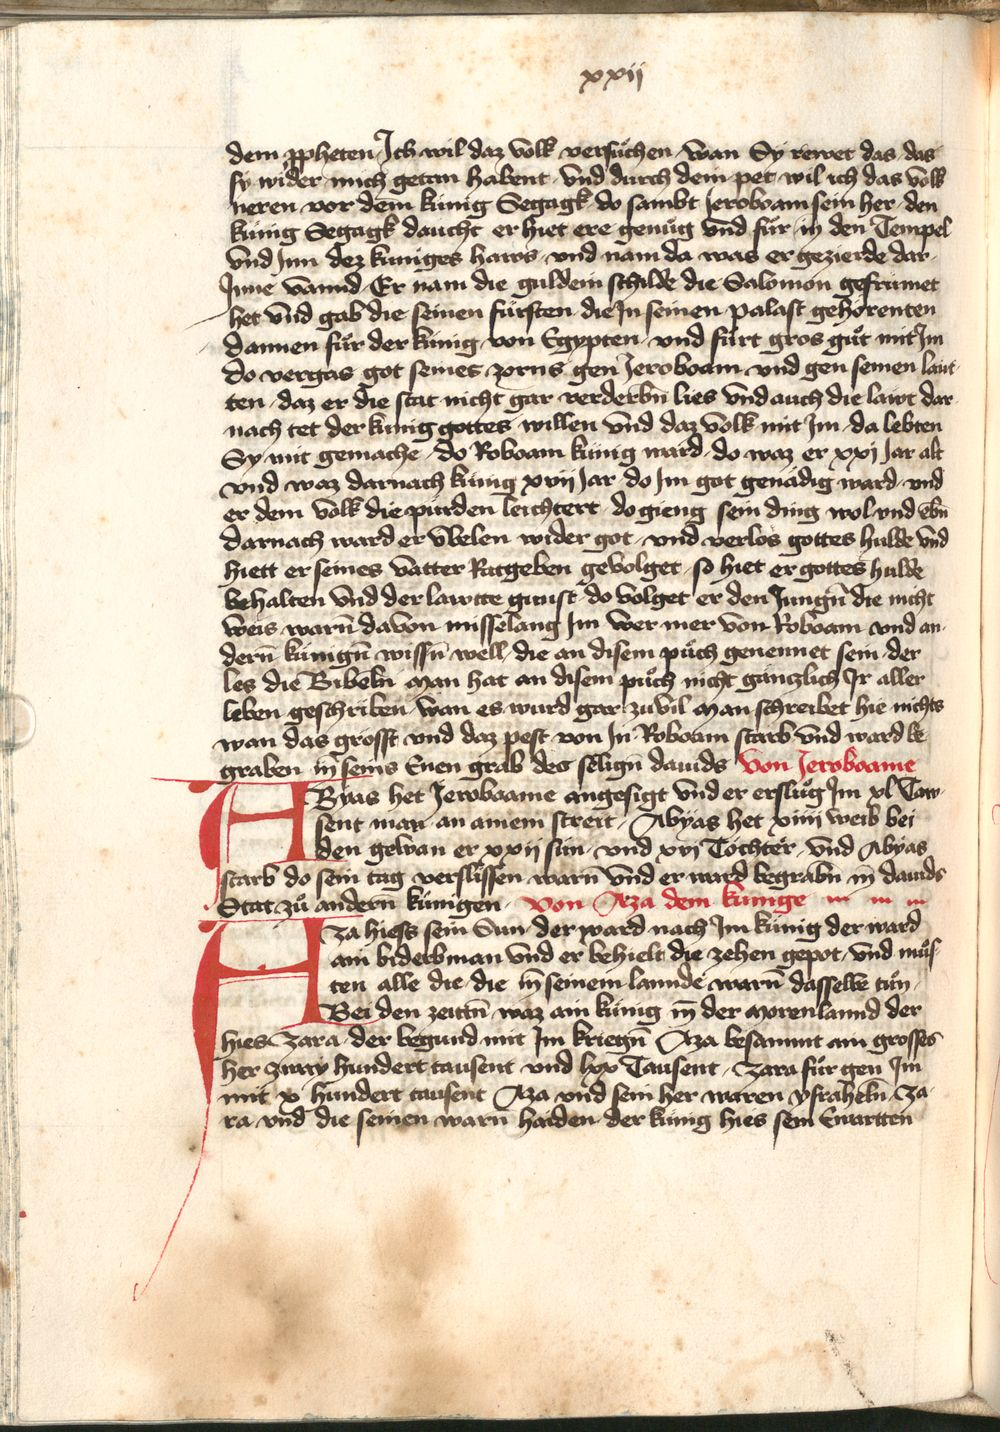 xxij
dem ppheten Ich wil daz volk versuͦchen wan Sy rewet das das
sy wider mich getan habent vnd durch dein pet wil ich das volk
neren vor dem künig Segagk do sambt Jeroboam sein her den
künig Segagk daucht er hiet ere genuͦg vnd fuͦr in den Tempel
vnd Inn dez kuniges haws vnd nam da was er gezierde dar
Inne vannd Er nam die guldein schilde die Salomon gefrümet
het vnd gab die seinen fürsten die In seinen palast gehorenten
dannen fuͦr der künig von Egypten vnd fürt gros guͦt mit Im
do vergas got seines zorns gen Jeroboam vnd gen seinen laut
ten daz er die stat nicht gar verderbn̄ lies vnd auch die lawt dar
nach tet der künig gottes willen vnd daz volk mit Im da lebten
Sy mit gemache do Roboam künig ward do waz er xxj Jar alt
vnd waz darnach künig xvij Jar do Im got genädig ward vnd
er dem volk die pürden leichtert do gieng sein ding wol vnd ebn̄
darnach ward er vbelen wider got vnd verlos gottes hulde vnd
hiett er seines vatter Ratgeben gevolget so hiet er gottes hulde
behalten vnd der lawtte gunst do volget er den Jungn̄ die nicht
weis warn̄ davon misselang Im wer mer von Roboam vnd an
dern̄ künign̄ wissn̄ well die an disem puͦch genennet sein der
les die Bibeln̄ Man hat an disem puͦch nicht gänczlich Ir aller
leben geschriben wan es wurd gar zuvil Man schreibet hie nichts
wan das grosst vnd daz pest von In Roboam starb vnd ward be
graben in̄ seins Enen grab des sēlign̄ dauids Von Jeroboame
AByas het Jeroboame angesigt vnd er ersluͦg Im xl Taw
sent man an ainem streit Abyas het xiiij weib bei
den gewan er xxij sün vnd xvj Töchter vnd Abyas
starb do sein tag verslissen warn̄ vnd er ward begrabn̄ in̄ dauids
Stat zuͦ andern̄ künigen Von Aza dem künige
Aza hiess sein Sun der ward nach Im künig der ward
ain biderbman vnd er behielt die zehen gepot vnd muͦs
ten alle die die in̄ seinem lannde warn̄ dasselbe tuͦn
Bei den zeittn̄ waz ain künig in̄ der Morenlannd der
hies Zara der begund mit Im kriegn̄ Aza besammt ain grosses
her zway hundert tausent vnd lxx Tausent Zara fuͦr gen Im
mit x hundert tausent Aza vnd sein her waren ysraheln̄ Za
ra vnd die seinen warn̄ haiden der künig hies sein Ewartten